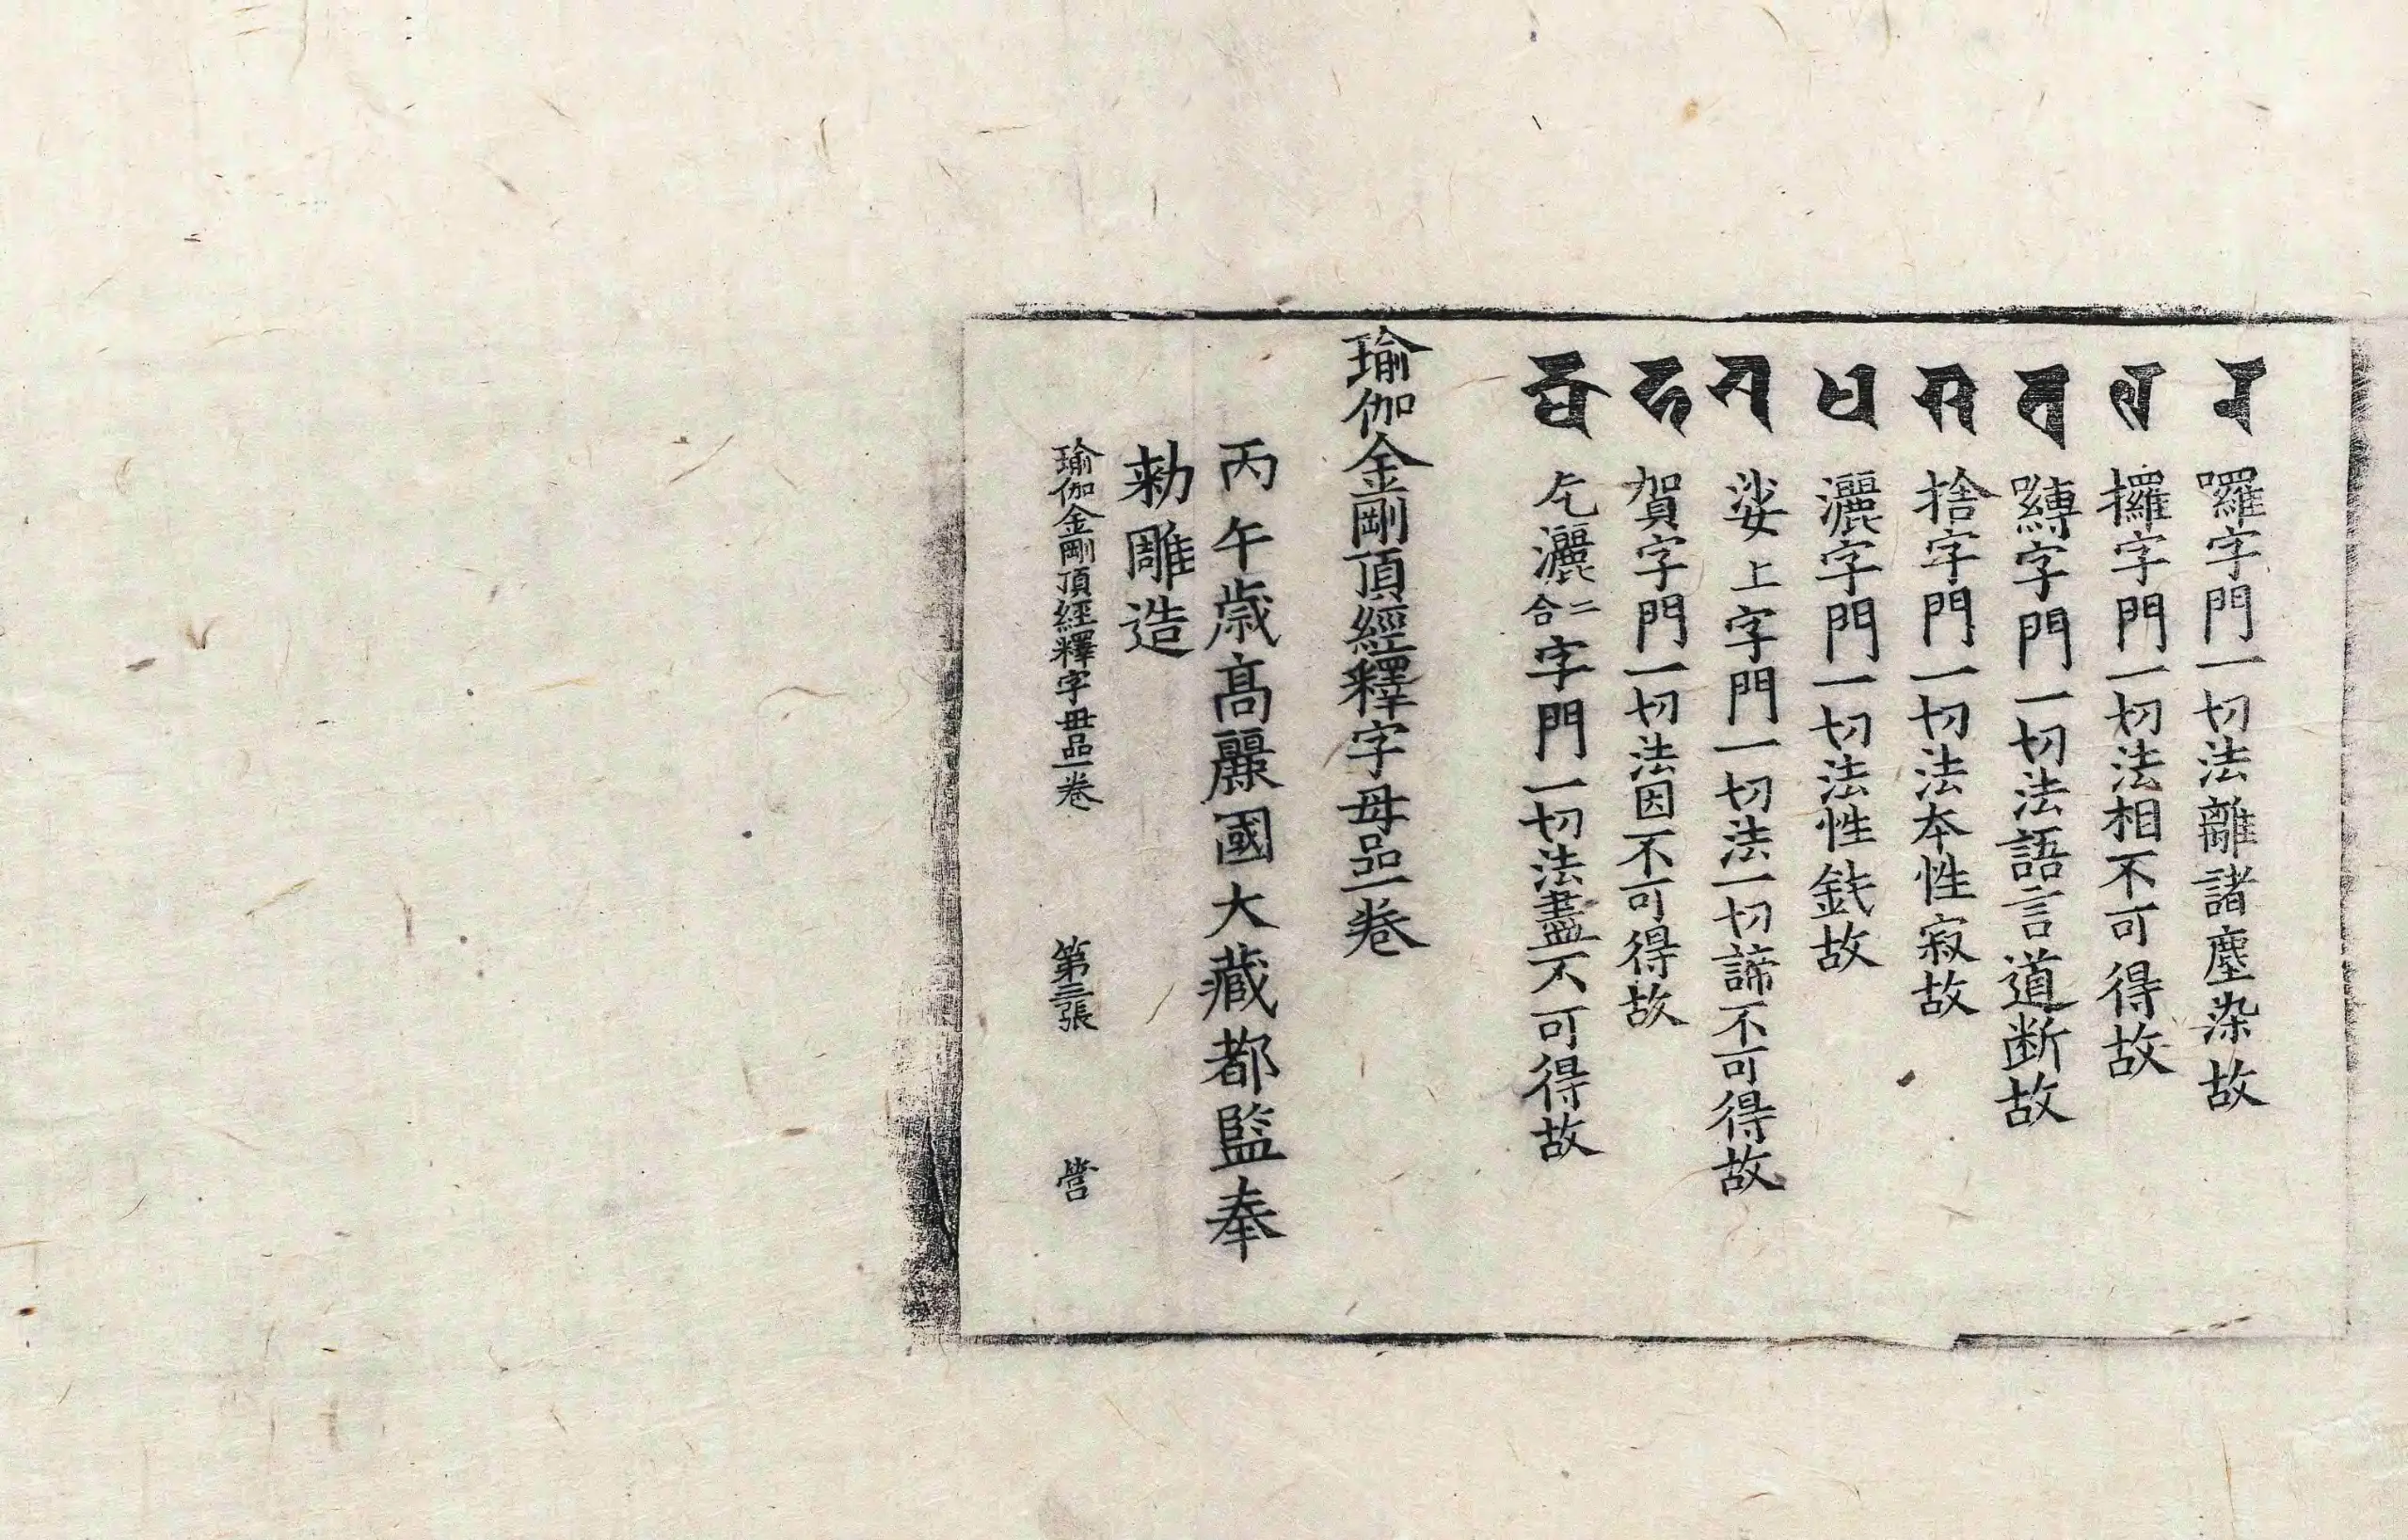 𑖨 囉字門一切法離諸塵染故
𑖩 攞字門一切法相不可得故
𑖪 嚩字門一切法語言道断故
𑖫 捨字門一切法本性寂故
𑖬 灑字門一切法性鈍故
𑖭 娑上字門一切法一切諦不可得故
𑖮 賀字門一切法因不可得故
𑖎𑖿𑖬 乞灑二合字門一切法盡不可得故
瑜伽金剛頂經釋字母品一卷
丙午歳高麗國大藏都監奉
勅雕造
瑜伽金剛頂經釋字母品一卷 第三張